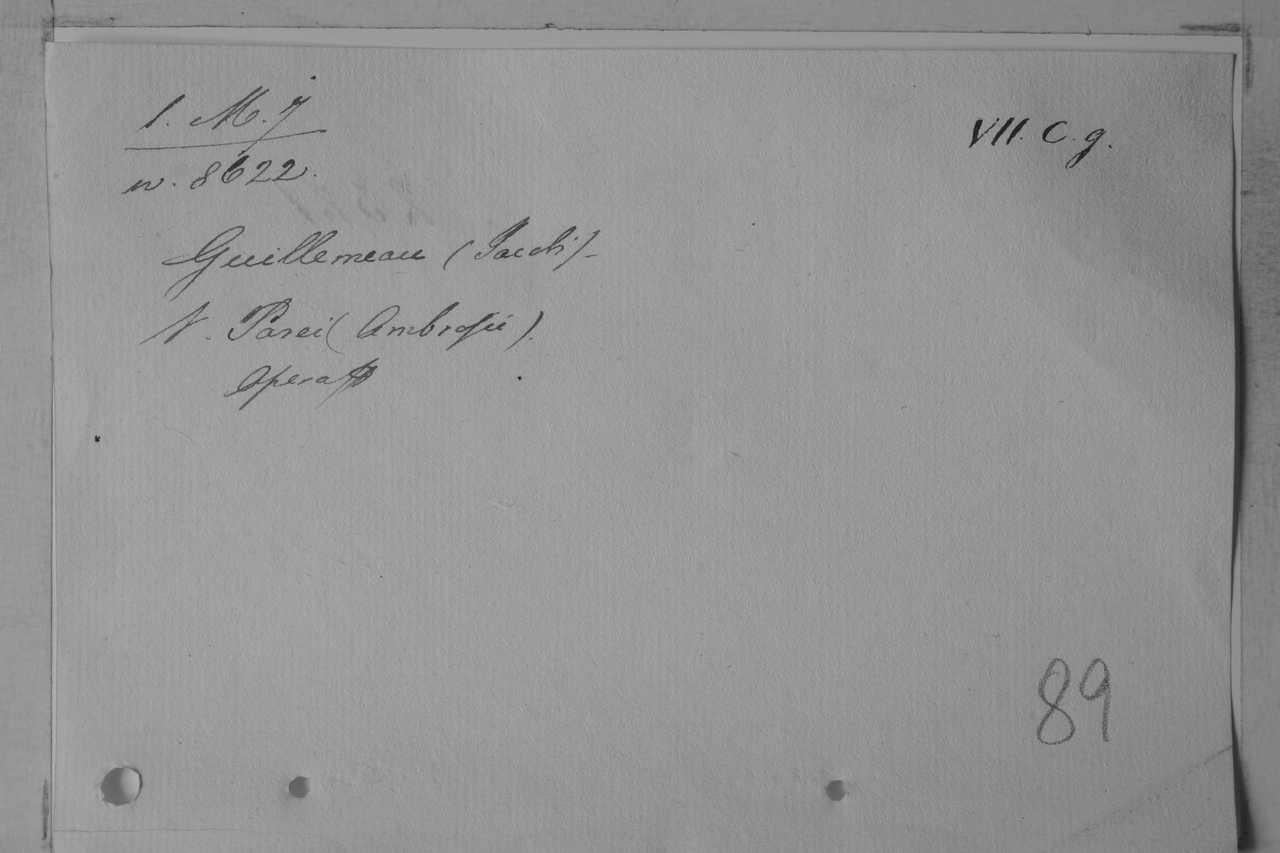 1. M. 7
VII. C. g.
n. 8622.
Guillemeau (Jacobi)-
V. Parei (Ambrosii).
Opera
89